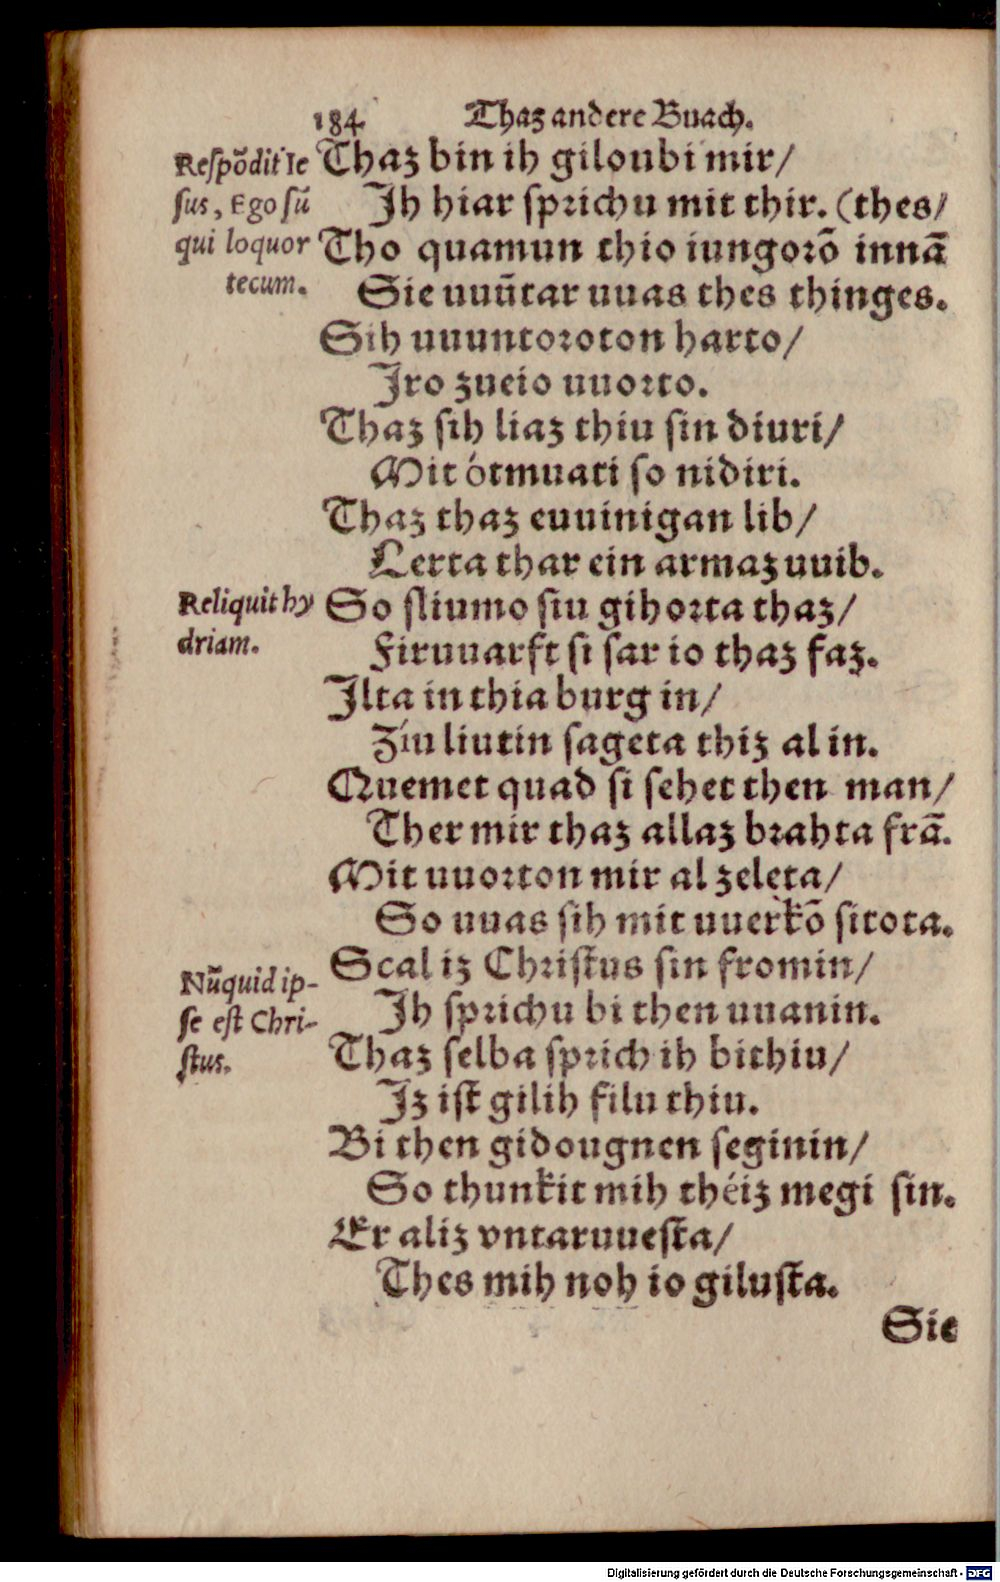 184 Thaz andere Buach.
Respõdit Ie
sus, Ego sũ
qui loquor
tecum.
Thaz bin ih giloubi mir/
Ih hiar sprichu mit thir. (thes/
Tho quamun thio iungorõ innã
Sie uuũtar uuas thes thinges.
Sih uuuntoroton harto/
Iro zueio uuorto.
Thaz sih liaz thiu sin diuri/
Mit ótmuati so nidiri.
Thaz thaz euuinigan lib/
Lerta thar ein armaz uuib.
Reliquit hy
driam.
So sliumo siu gihorta thaz/
Firuuarft si sar io thaz faz.
Ilta in thia burg in/
Zíu liutin sageta thiz al in.
Quemet quad si sehet then man/
Ther mir thaz allaz brahta frã.
Mit uuorton mir al zeleta/
So uuas sih mit uuerkõ sitota.
Nũquid ip-
se est Chri-
stus.
Scal iz Christus sin fromin/
Ih sprichu bi then uuanin.
Thaz selba sprich ih bithiu/
Iz ist gilih filu thiu.
Bi then gidougnen seginin/
So thunkit mih théiz megi sin.
Er aliz vntaruuesta/
Thes mih noh io gilusta.
Sie
Digitalisierung gefördert durch die Deutsche Forschungsgemeinschaft - DFG